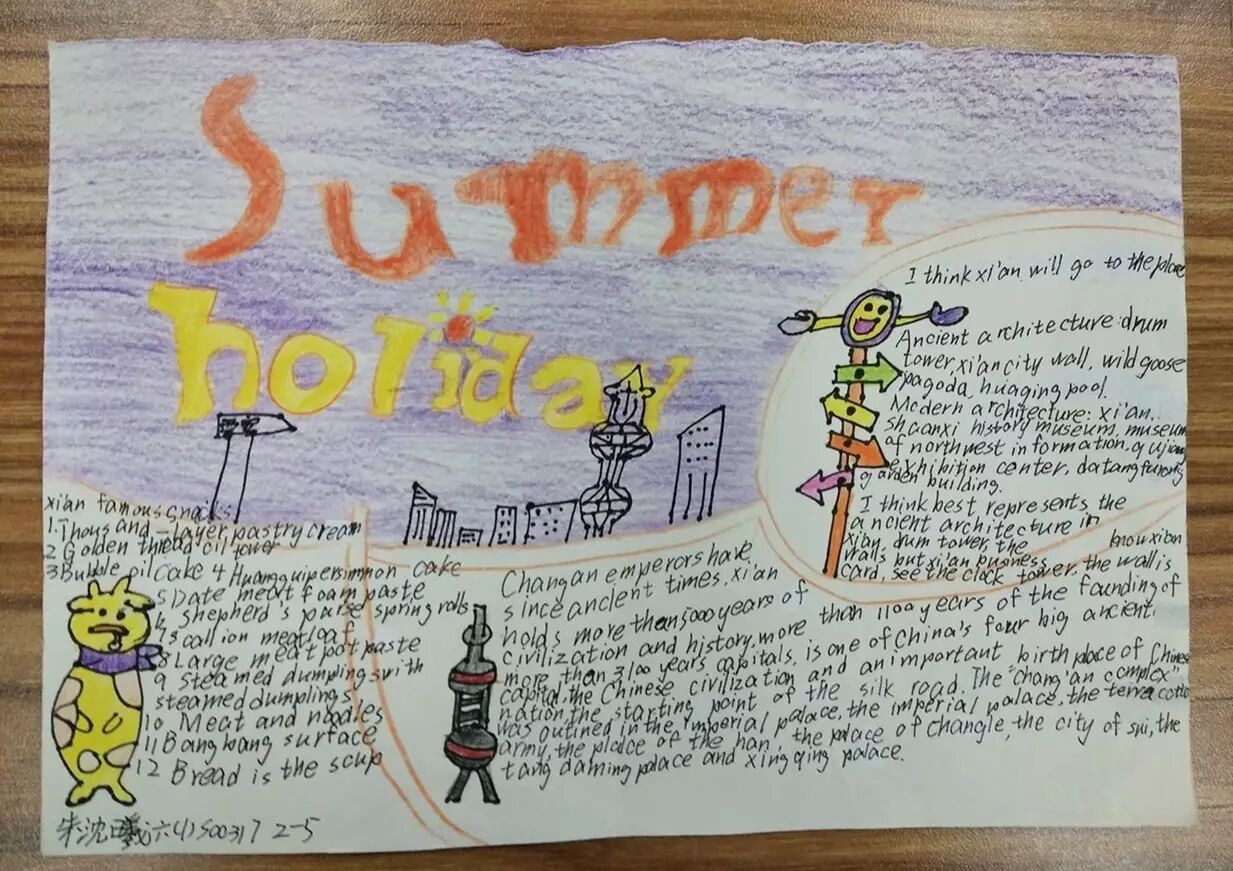 Summer
holiday
I think xi'an will go to the place
Ancient architecture: drum
tower, xi'an city wall, wild goose
pagoda, huaqing pool.
Modern architecture: xi'an.
shaanxi history museum. museum
of northwest in formation. qujiang
exhibition center, datang furong
garden building.
I think best represents the
ancient architecture in
xian drum tower, the know xian
walls but xi'an business
card, see the clock tower. the wall is
xi'an famous snack:
1. Thousand-layer pastry cream
2 Golden thread oil tower
3 Bubble oil cake 4 Huangguipersimmon cake
5 Date meat foam paste
6 shepherd's purse spring rolls
7 scallion meat loaf
8 Large meat pot paste
9 steamed dumplings with
steamed dumplings
10 Meat and noodles
11 Bangbang surface
12 Bread is the soup
Changan emperors have
since ancient times. xi'an
holds more than 5000 years of
civilization and history. more than 1100 years of the founding of
more than 3100 years capitals, is one of China's four big ancient.
capital. the Chinese civilization and an important birth place of Chinese
nation, the starting point of the silk road. The "chang'an complex"
was outined in the imperial palace, the imperial palace, the terra cotta
army, the place of the han, the palace of changle, the city of sui, the
tang daming palace and xing qing palace.
朱沈曦 六(4) 2-5